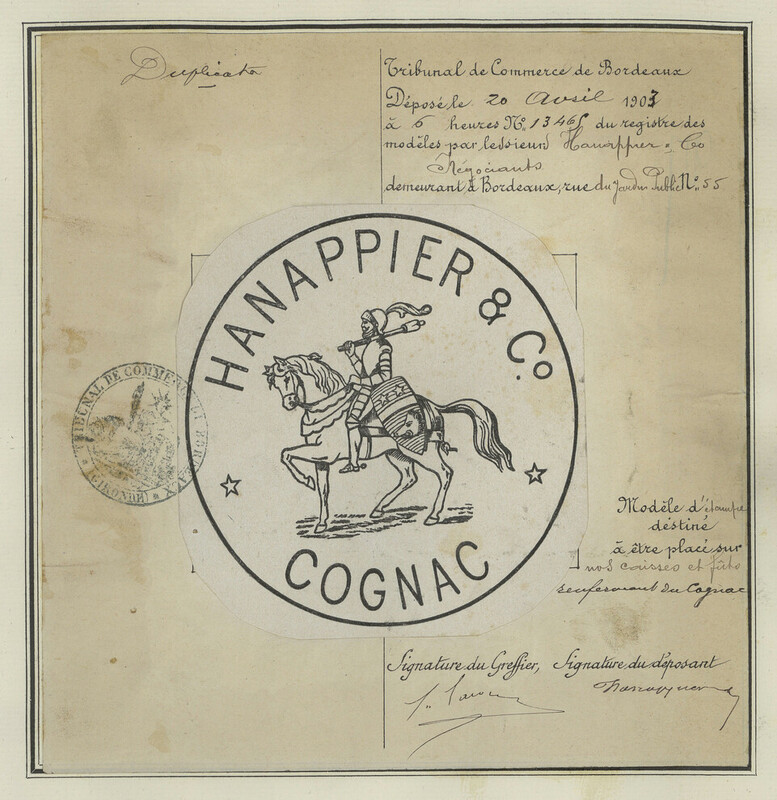 Duplicata
Tribunal de Commerce de Bordeaux
Déposé le 20 Avril 1903
à 6 heures No. 13465 du registre des
modèles par les sieurs Hanappier & Co
Négociants
demeurant à Bordeaux, rue du Jardin Public No. 55
HANAPPIER & Co.
TRIBUNAL DE COMMERCE DE BORDEAUX
(GIRONDE)
COGNAC
Modèle d'étampe
destiné
à être placé sur
nos caisses et fûts
renfermant du Cognac
Signature du Greffier, Signature du déposant